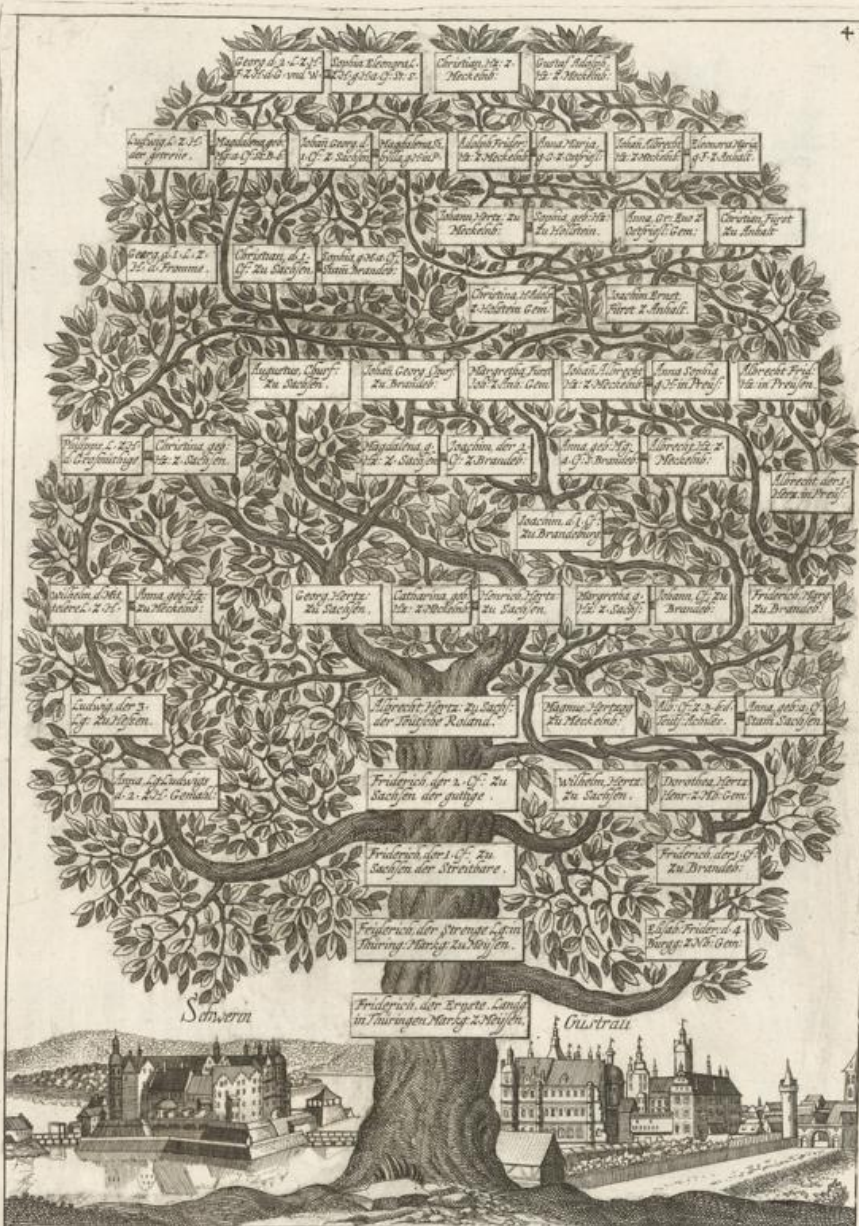 4
Georg d. 2. L. Z. H.
F. Z. H. d. G. und W.
Sophia Eleonora L.
Z. H. g. H. a. Cf. St. S.
Christian, Hz: z.
Meckelnb:
Gustaf Adolph,
Hz: Z. Meckelnb:
Ludwig L. Z. H.
der getreue.
Magdalena geb:
Mg: a. Cf. St. B. b.
Johan Georg, d.
1. Cf: Z. Sachsen
Magdalena Si,
bylla, g. H. in P.
Adolph Frider:
Hz: Z. Meckelnb:
Anna Maria,
g. G. z. Ostfriesl:
Johan Albrecht
Hz: Z. Meckelnb:
Eleonora Maria
g. F. Z. Anhalt.
Johann Hertz: zu
Meckelnb:
Sophia, geb: Hz:
Zu Hollstein.
Anna, Gr: Eno Z.
Ostfriesl: Gem:
Christian, Fürst
Zu Anhalt
Georg, d. 1. L. Z.
H. d. Fromme.
Christian, d. 1.
Cf: Zu Sachsen
Sophia g. M. a. Cf.
Stam Brandeb:
Christina, H. Adolf
Z. Holstein Gem
Joachim Ernst
Fürst Z. Anhalt.
Augustus, Churf:
Zu Sachsen.
Johan Georg, Churf:
Zu Brandeb:
Margretha, Fürst
Joh: Z. Anh: Gem
Johan Albrecht
Hz: Z. Meckelnb:
Anna Sophia
g. H. in Preuß:
Albrecht Frid:
Hz: in Preusen.
Philipps L. Z. H.
d. Großmüthige
Christina, geb:
Hz: Z. Sachsen.
Magdalena, g.
Hz: Z. Sachsen
Joachim, der 2.
Cf: Z. Brandeb:
Anna, geb: Mg:
a. Cf: S. Brandeb:
Albrecht Hz: Z.
Meckelnb:
Albrecht der 1.
Herz: in Preuß:
Joachim, d. 1. Cf:
Zu Brandeburg
Wilhelm, d. Mit
telere L. Z. H.
Anna, geb: Hz:
Zu Meckelnb:
Georg, Hertz:
Zu Sachsen.
Catharina, geb:
Hz: Z. Meckelnb:
Henrich, Hertz:
Zu Sachsen.
Margretha, g.
Hz: Z. Sachs:
Johann, Cf: Zu
Brandeb:
Friderich, Marg
Zu Brandeb:
Ludwig, der 3.
Lg: Zu Hessen.
Albrecht, Hertz: zu Sachs:
der Teutsche Roland.
Magnus, Hertzog
Zu Meckelnb:
Alb: Cf: Z. B. b. d.
Teuts: Achiles.
Anna, geb: a. Cf:
Stam Sachsen.
Anna, Lg: Ludwigs
d. 2. Z. H. Gemahl:
Friderich, der 2. Cf: Zu
Sachsen der guttige.
Wilhelm, Hertz:
Zu Sachsen.
Dorothea, Hertz:
Henr: Z. Mb: Gem
Friderich, der 1. Cf: Zu
Sachsen der Streitbare.
Friderich, der 1. Cf:
Zu Brandeb:
Friderich, der Strenge Lg: in
Thüring: Markg: Zu Meyssen.
Elisab: Frider: d. 4.
Burgg: Z. Nb: Gem:
Friderich, der Ernste, Landg:
in Thüringen Markg: Z. Meyssen.
Schwerin
Gustrau